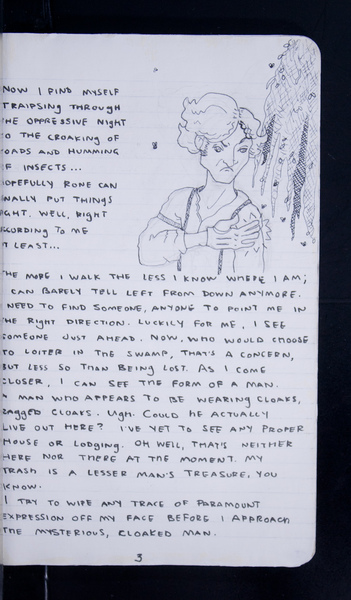 NOW I FIND MYSELF
TRAIPSING THROUGH
HE OPPRESSIVE NIGHT
O THE CROAKING OF
OADS AND HUMMING
F INSECTS...
OPEFULLY RONE CAN
NALLY PUT THINGS
IGHT. WELL, RIGHT
CCORDING TO ME
T LEAST...
HE MORE I WALK THE LESS I KNOW WHERE I AM;
CAN BARELY TELL LEFT FROM DOWN ANYMORE.
NEED TO FIND SOMEONE, ANYONE TO POINT ME IN
HE RIGHT DIRECTION. LUCKILY FOR ME, I SEE
SOMEONE JUST AHEAD. NOW, WHO WOULD CHOOSE
TO LOITER IN THE SWAMP, THAT'S A CONCERN,
BUT LESS SO THAN BEING LOST. AS I COME
CLOSER, I CAN SEE THE FORM OF A MAN.
A MAN WHO APPEARS TO BE WEARING CLOAKS,
RAGGED CLOAKS. UGH. COULD HE ACTUALLY
LIVE OUT HERE? I'VE YET TO SEE ANY PROPER
HOUSE OR LODGING. OH WELL, THAT'S NEITHER
HERE NOR THERE AT THE MOMENT. MY
TRASH IS A LESSER MAN'S TREASURE, YOU
KNOW.
I TRY TO WIPE ANY TRACE OF PARAMOUNT
EXPRESSION OFF MY FACE BEFORE I APPROACH
THE MYSTERIOUS, CLOAKED MAN.
3